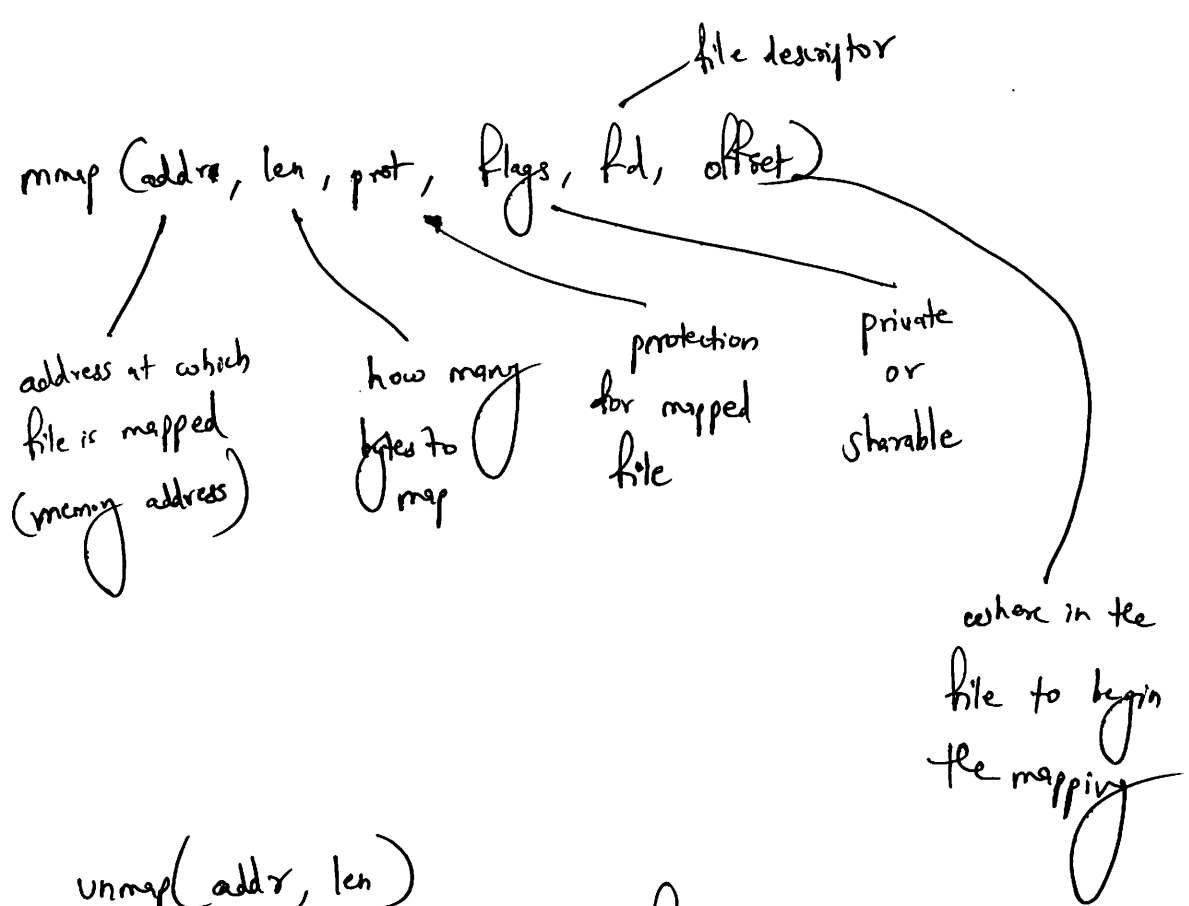 file descriptor
mmap (addr, len, prot, flags, fd, offset)
address at which
file is mapped
(memory address)
how many
bytes to
map
protection
for mapped
file
private
or
sharable
where in the
file to begin
the mapping
unmap(addr, len)